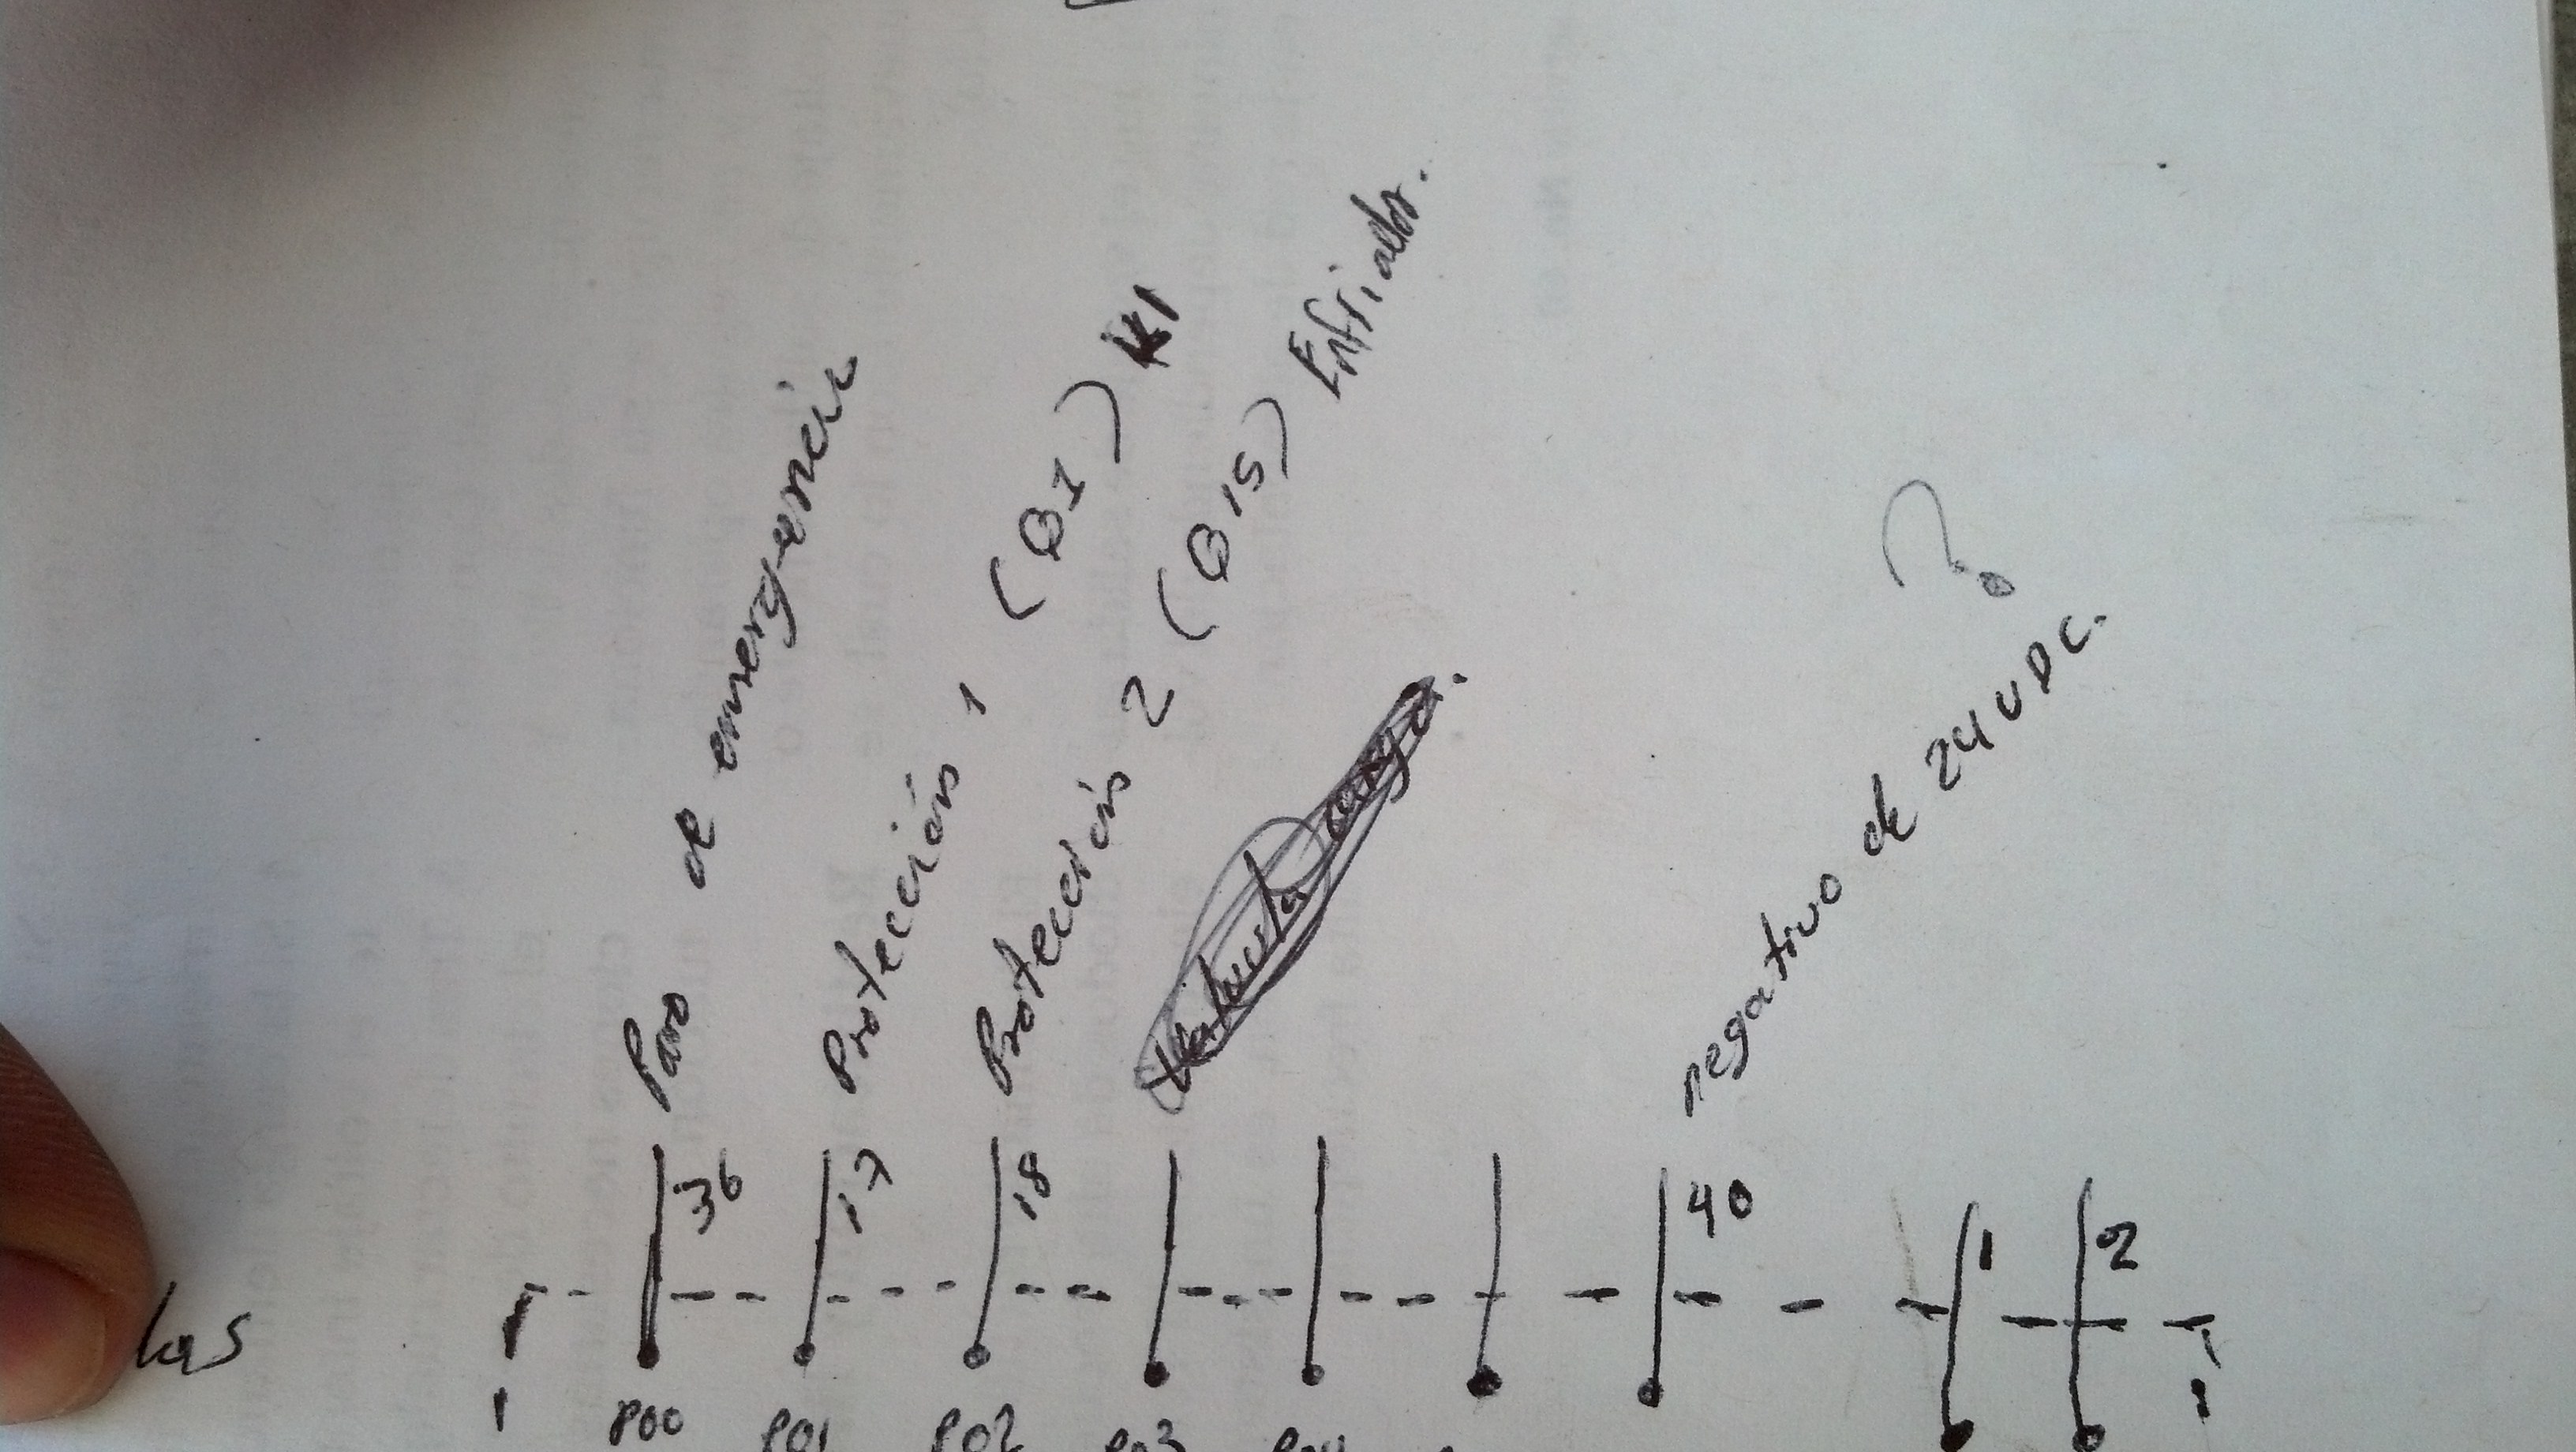 Paro de emergencia
Protección 1 (Q1) K1
Protección 2 (Q15) Enfriador.
negativo de 24 VDC.
?
36 17 18 40 1 2
P00 P01 P02 P03 P04